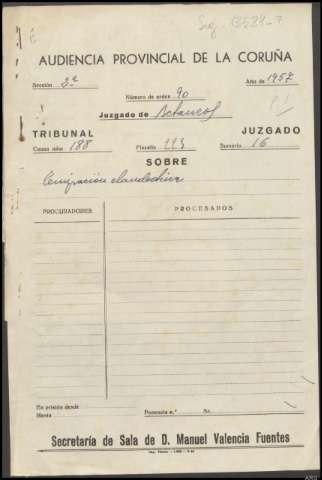 Sig. 13581-7
AUDIENCIA PROVINCIAL DE LA CORUÑA
Sección 3ª Año de 1957
Número de orden 90
Juzgado de Betanzos
TRIBUNAL JUZGADO
Causa núm. 188 Fiscalía 223 Sumario 16
SOBRE
Emigración clandestina
PROCURADORES PROCESADOS
En prisión desde
Hasta Ponencia n.º Sr.
Secretaría de Sala de D. Manuel Valencia Fuentes